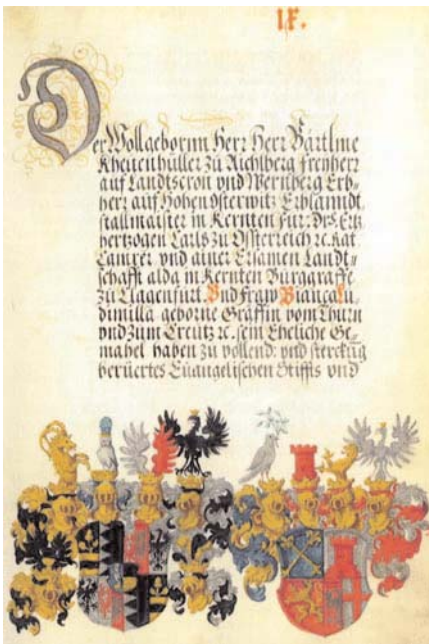 IX.
Der Wollgeborinn Herr Herr Bärtlme
Kheuenhüller zü Aichlberg Freyherr
auf Landtscron vnd Wernberg Erb-
herr auf Hohen Osterwitz Erblanndt
stallmaister in Kernten Für: Drt: Ertz
hertzogen Carls zu Össterreich ec. Rat
Camrer vnd ainer Ersamen Landt-
schafft alda in Kernten Bürggraffe
zü Clagenfurt. Vnd Fraw Bianca Lu
dimilla geborne Gräffin vom Thurn
vnd zum Creütz ec. sein Eheliche Ge-
mahel haben zu vollend: vnd stercküg
berüertes Euangelischen Stiffts vnd